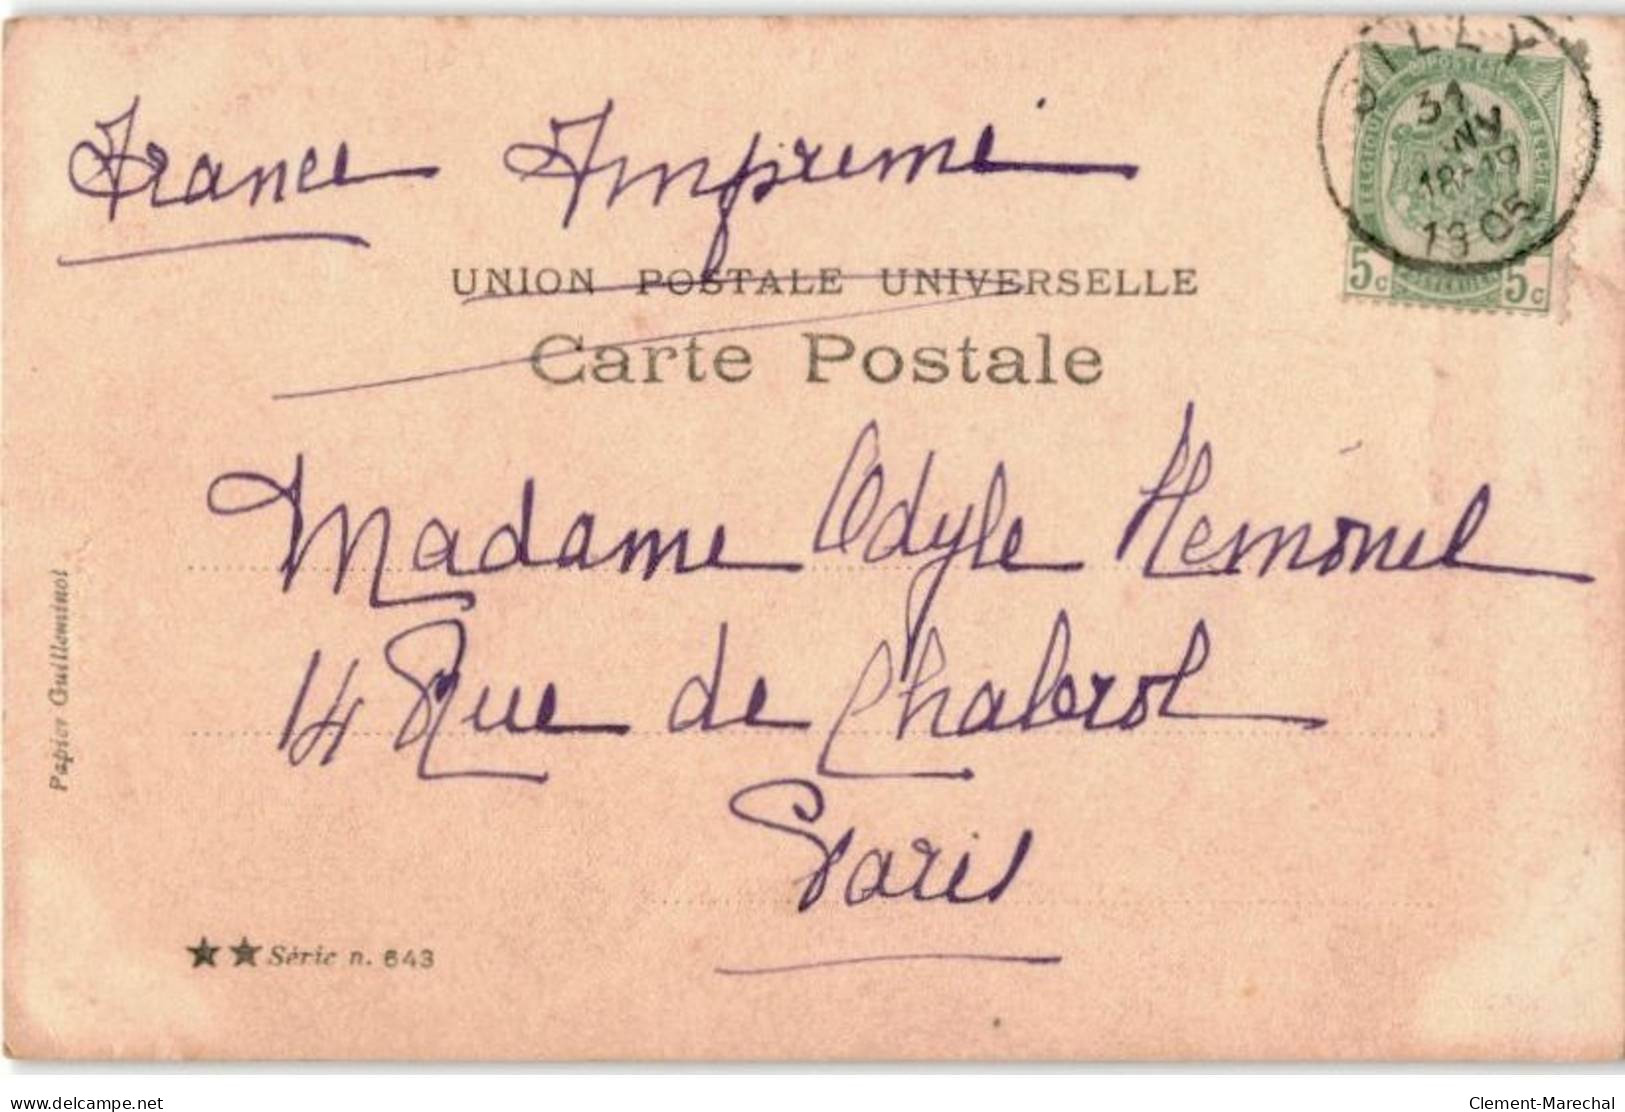 France Imprimé
GILLY
31
18-19
1905
POSTES
BELGIQUE
5c 5c
UNION POSTALE UNIVERSELLE
Carte Postale
Madame Odyle Hemonel
14 Rue de Chabrol
Paris
Papier Guilleminot
Série n. 643
delcampe.net
Clement-Marechal